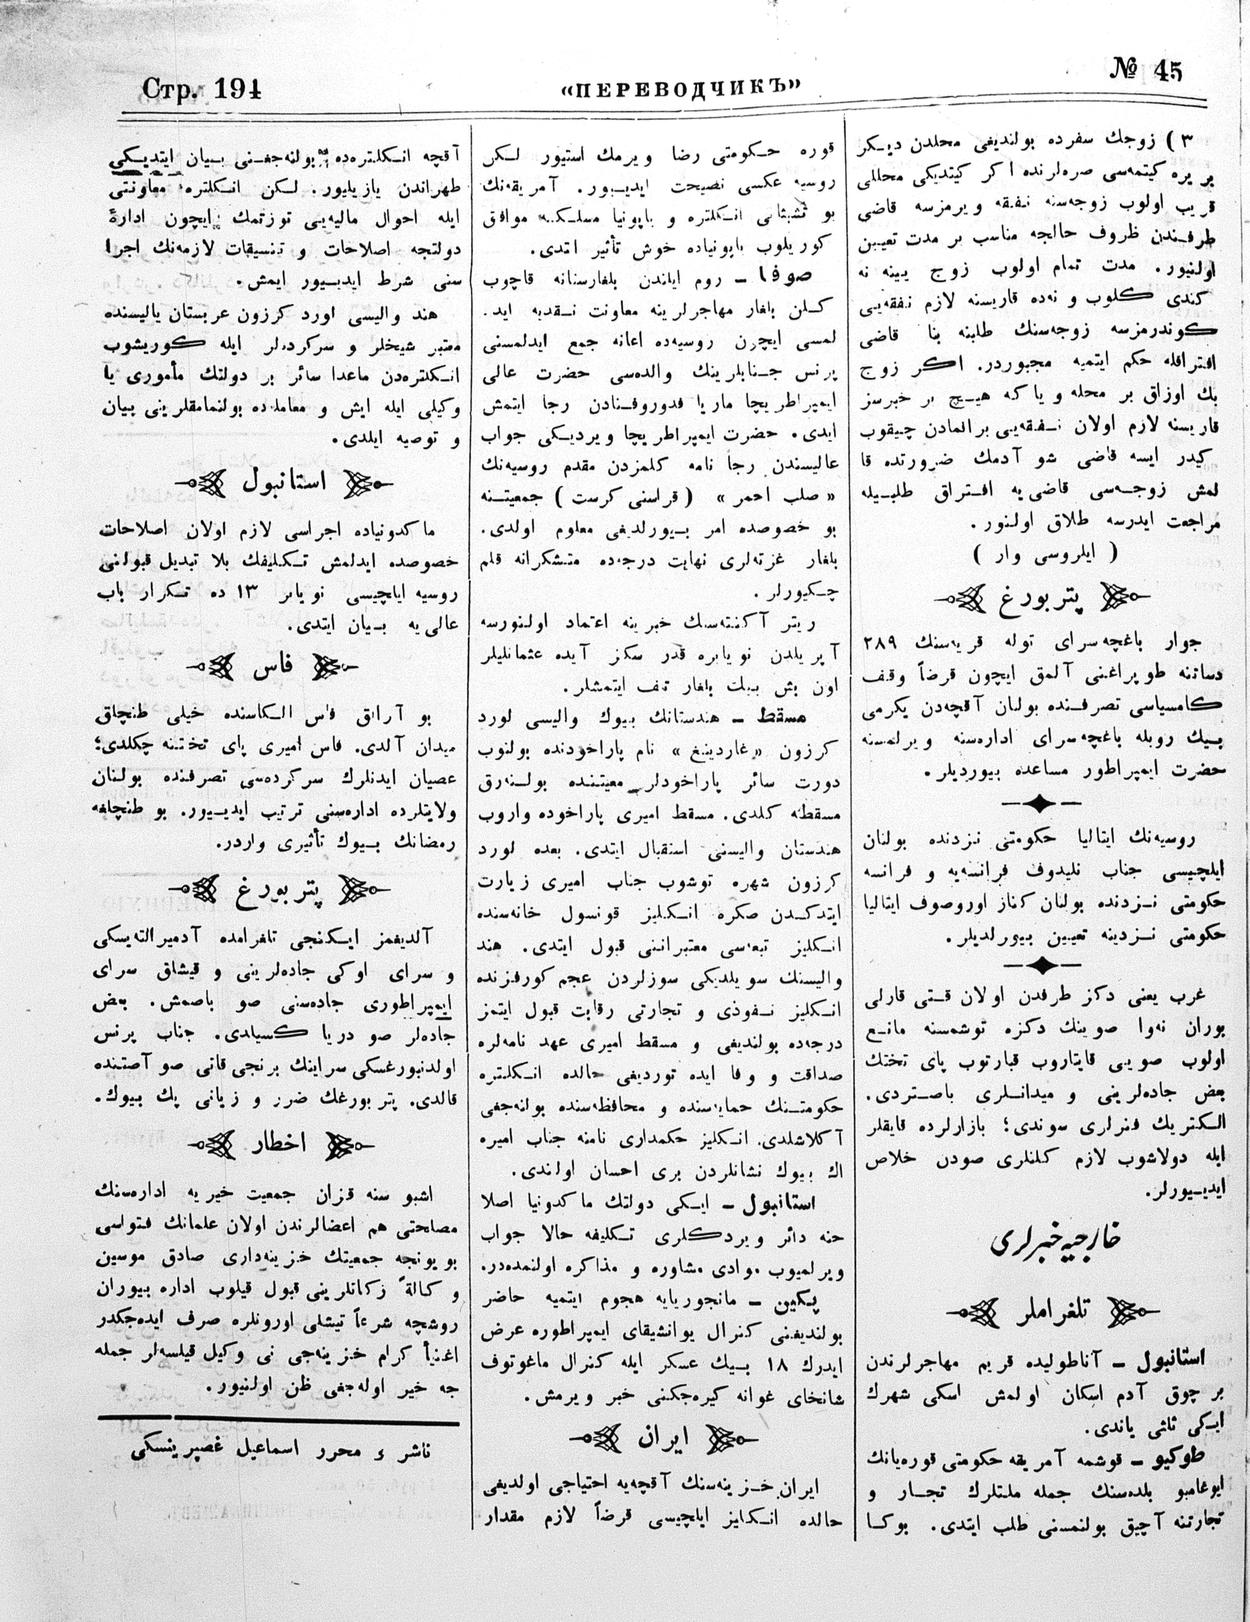 Стр. 194
«ПЕРЕВОДЧИКЪ»
№ 45
٣ ) زوجك سفرده بولنديغى محلدن ديكر
بر يره كيتمه‌سى صره‌لرنده اكر كيتديكى محللى
قريب اولوب زوجه‌سنه نفقه ويرمزسه قاضى
طرفندن ظروف حالجه مناسب بر مدت تعيين
اولنيور. مدت تمام اولوب زوج يينه نه
كندى كلوب و نه‌ده قاريسنه لازم نفقه‌يى
كوندرمزسه زوجه‌سنك طلبنه بنا قاضى
افتراقله حكم ايتميه مجبوردر. اكر زوج
پك اوزاق بر محله و ياكه هيچ بر خبرسز
قاريسنه لازم اولان نفقه‌يى براقمادن چيقوب
كيدر ايسه قاضى شو آدمك ضرورتده قا
لمش زوجه‌سى قاضى‌يه افتراق طلبيله
مراجعت ايدرسه طلاق اولنور.
( ايلروسى وار )
پتربورغ
جوار باغچه‌سراى توله قريه‌سنك ٢٨٩
دساتنه طوپراغنى آلمق ايچون قرضاً وقف
كامسياسى تصرفنده بولنان آقچه‌دن يكرمى
بيك روبله باغچه‌سراى اداره‌سنه ويرلمسنه
حضرت ايمپراطور مساعده بيورديلر.
روسيه‌نك ايتاليا حكومتى نزدنده بولنان
ايلچيسى جناب نليدوف فرانسه‌يه و فرانسه
حكومتى نزدنده بولنان كناز اوروصوف ايتاليا
حكومتى نزدينه تعيين بيورلديلر.
غرب يعنى دكز طرفدن اولان قتى قارلى
بوران نه‌وا صوينك دكزه توشمسنه مانع
اولوب صويى قايتاروب قبارتوب پاى تختك
بعض جاده‌لرينى و ميدانلرى باصتردى.
الكتريك فنرلرى سوندى؛ بازارلرده قايقلر
ايله دولاشوب لازم كلنلرى صودن خلاص
ايديورلر.
خارجيه خبرلرى
تلغراملر
استانبول — آناطوليده قريم مهاجرلرندن
بر چوق آدم اسكان اولمش اسكى شهرك
ايكى ثلثى ياندى.
طوكيو — قوشمه آمريقه حكومتى قوره‌يانك
ايوغامبو بلده‌سنك جمله ملتلرك تجار و
تجارتنه آچيق بولنمسنى طلب ايتدى. بوكا
قوره حكومتى رضا ويرمك استيور لكن
روسيه عكسى نصيحت ايديور. آمريقه‌نك
بو تشبثاتى انكلتره و ياپونيا مسلكنه موافق
كوريلوب ياپونياده خوش تأثير ايتدى.
صوفا — روم ايلندن بلغارستانه قاچوب
كلن بلغار مهاجرلرينه معاونت نقديه ايد.
لمسى ايچون روسيه‌ده اعانه جمع ايدلمسنى
پرنس جنابلرينك والده‌سى حضرت عالى
ايمپراطريچا ماريا فدوروفنادن رجا ايتمش
ايدى. حضرت ايمپراطريچا ويرديكى جواب
عاليسندن رجا نامه كلمزدن مقدم روسيه‌نك
« صلب احمر » ( قراسنى كرست ) جمعيتنه
بو خصوصده امر بيورلديغى معلوم اولدى.
بلغار غزته‌لرى نهايت درجه‌ده متشكرانه قلم
چكيورلر.
ريتر آكنته‌سنك خبرينه اعتماد اولنورسه
آپريلدن نويابره قدر سكز آيده عثمانليلر
اون بش بيك بلغار تلف ايتمشلر.
مسقط — هندستانك بيوك واليسى لورد
كرزون « غاردينغ » نام پاراخودنده بولنوب
دورت سائر پاراخودلر معيتنده بولنه‌رق
مسقطه كلدى. مسقط اميرى پاراخوده واروب
هندستان واليسنى استقبال ايتدى. بعده لورد
كرزون شهره توشوب جناب اميرى زيارت
ايتدكدن صكره انكليز قونسول خانه‌سنده
انكليز تبعه‌سى معتبراننى قبول ايتدى. هند
واليسنك سويلديكى سوزلردن عجم كورفزنده
انكليز نفوذى و تجارتى رقابت قبول ايتمز
درجه‌ده بولنديغى و مسقط اميرى عهد نامه‌لره
صداقت و وفا ايده تورديغى حالده انكلتره
حكومتنك حمايه‌سنده و محافظه‌سنده بولنه‌جغى
آكلاشلدى. انكليز حكمدارى نامنه جناب اميره
اك بيوك نشانلردن برى احسان اولندى.
استانبول — ايكى دولتك ماكدونيا اصلا
حنه دائر ويردكلرى تكليفه حالا جواب
ويرلميوب موادى مشاوره و مذاكره اولنمده‌در.
پكين — مانجوريايه هجوم ايتميه حاضر
بولنديغنى كنرال يوانشيقاى ايمپراطوره عرض
ايدرك ١٨ بيك عسكر ايله كنرال ماغوتوف
شانخاى غوانه كيره‌جكنى خبر ويرمش.
ايران
ايران خزينه‌سنك آقچه‌يه احتياجى اولديغى
حالده انكليز ايلچيسى قرضاً لازم مقدار
آقچه انكلتره‌ده بولنه‌جغنى بيان ايتديكى
طهراندن يازيليور. لكن انكلتره معاونتى
ايله احوال ماليه‌يى توزتمك ايچون ادارهٔ
دولتجه اصلاحات و تنسيقات لازمه‌نك اجرا
سنى شرط ايديور ايمش.
هند واليسى لورد كرزون عربستان ياليسنده
معتبر شيخلر و سركردلر ايله كوريشوب
انكلتره‌دن ماعدا سائر بر دولتك مأمورى يا
وكيلى ايله ايش و معامله‌ده بولنمامقلرينى بيان
و توصيه ايلدى.
استانبول
ماكدونياده اجراسى لازم اولان اصلاحات
خصوصده ايدلمش تكليفك بلا تبديل قبولنى
روسيه ايلچيسى نويابر ١٣ ده تكرار باب
عالى‌يه بيان ايتدى.
فاس
بو آرالق فاس الكاسنده خيلى طنچلق
ميدان آلدى. فاس اميرى پاى تختنه چكلدى؛
عصيان ايدنلرك سركرده‌سى تصرفنده بولنان
ولايتلرده اداره‌سنى ترتيب ايديور. بو طنچلغه
رمضانك بيوك تأثيرى واردر.
پتربورغ
آلديغمز ايكنجى تلغرامده آدميرالته‌يسكى
و سراى اوكى جاده‌لرينى و قيشلق سراى
ايمپراطورى جاده‌سنى صو باصمش. بعض
جاده‌لر صو دريا كسيلدى. جناب پرنس
اولدنبورغسكى سراينك برنجى قاتى صو آستنده
قالدى. پتربورغك ضرر و زيانى پك بيوك.
اخطار
اشبو سنه قزان جمعيت خيريه اداره‌سنك
مصلحتى هم اعضالرندن اولان علمانك فتواسى
بويونجه جمعيتك خزينه‌دارى صادق موسين
وكالةً زكاتلرينى قبول قيلوب اداره بيوران
روشچه شرعاً تيشلى اورونلره صرف ايده‌جكدر
اغنيأ كرام خزينه‌جى نى وكيل قيلسه‌لر جمله
جه خير اوله‌جغى ظن اولنيور.
ناشر و محرر اسماعيل غصپرينسكى